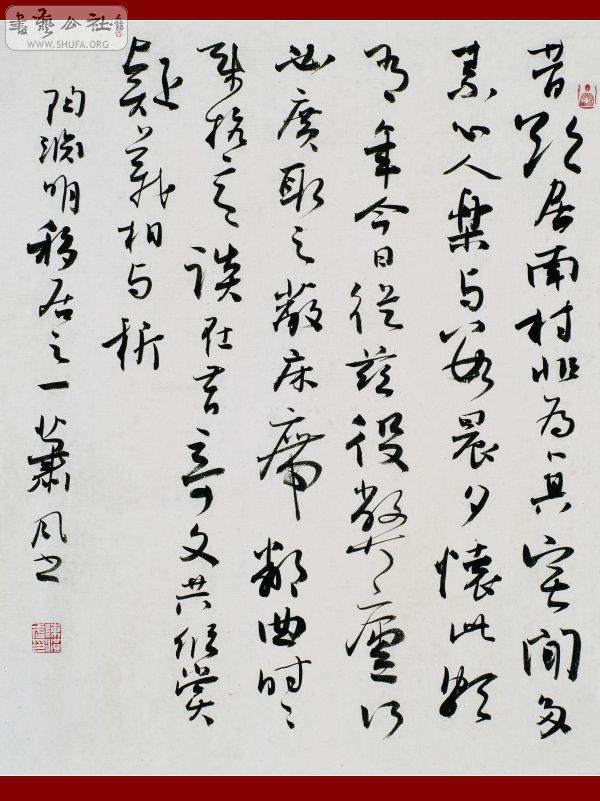 書藝公社
www.SHUFA.ORG
昔欲居南村非為卜其宅聞多
素心人樂与數晨夕懷此頗
有年今日從茲役弊廬何
必廣取足蔽床席鄰曲時々
來抗言談在昔奇文共欣賞
疑義相与析
陶淵明移居之一 蕭風書